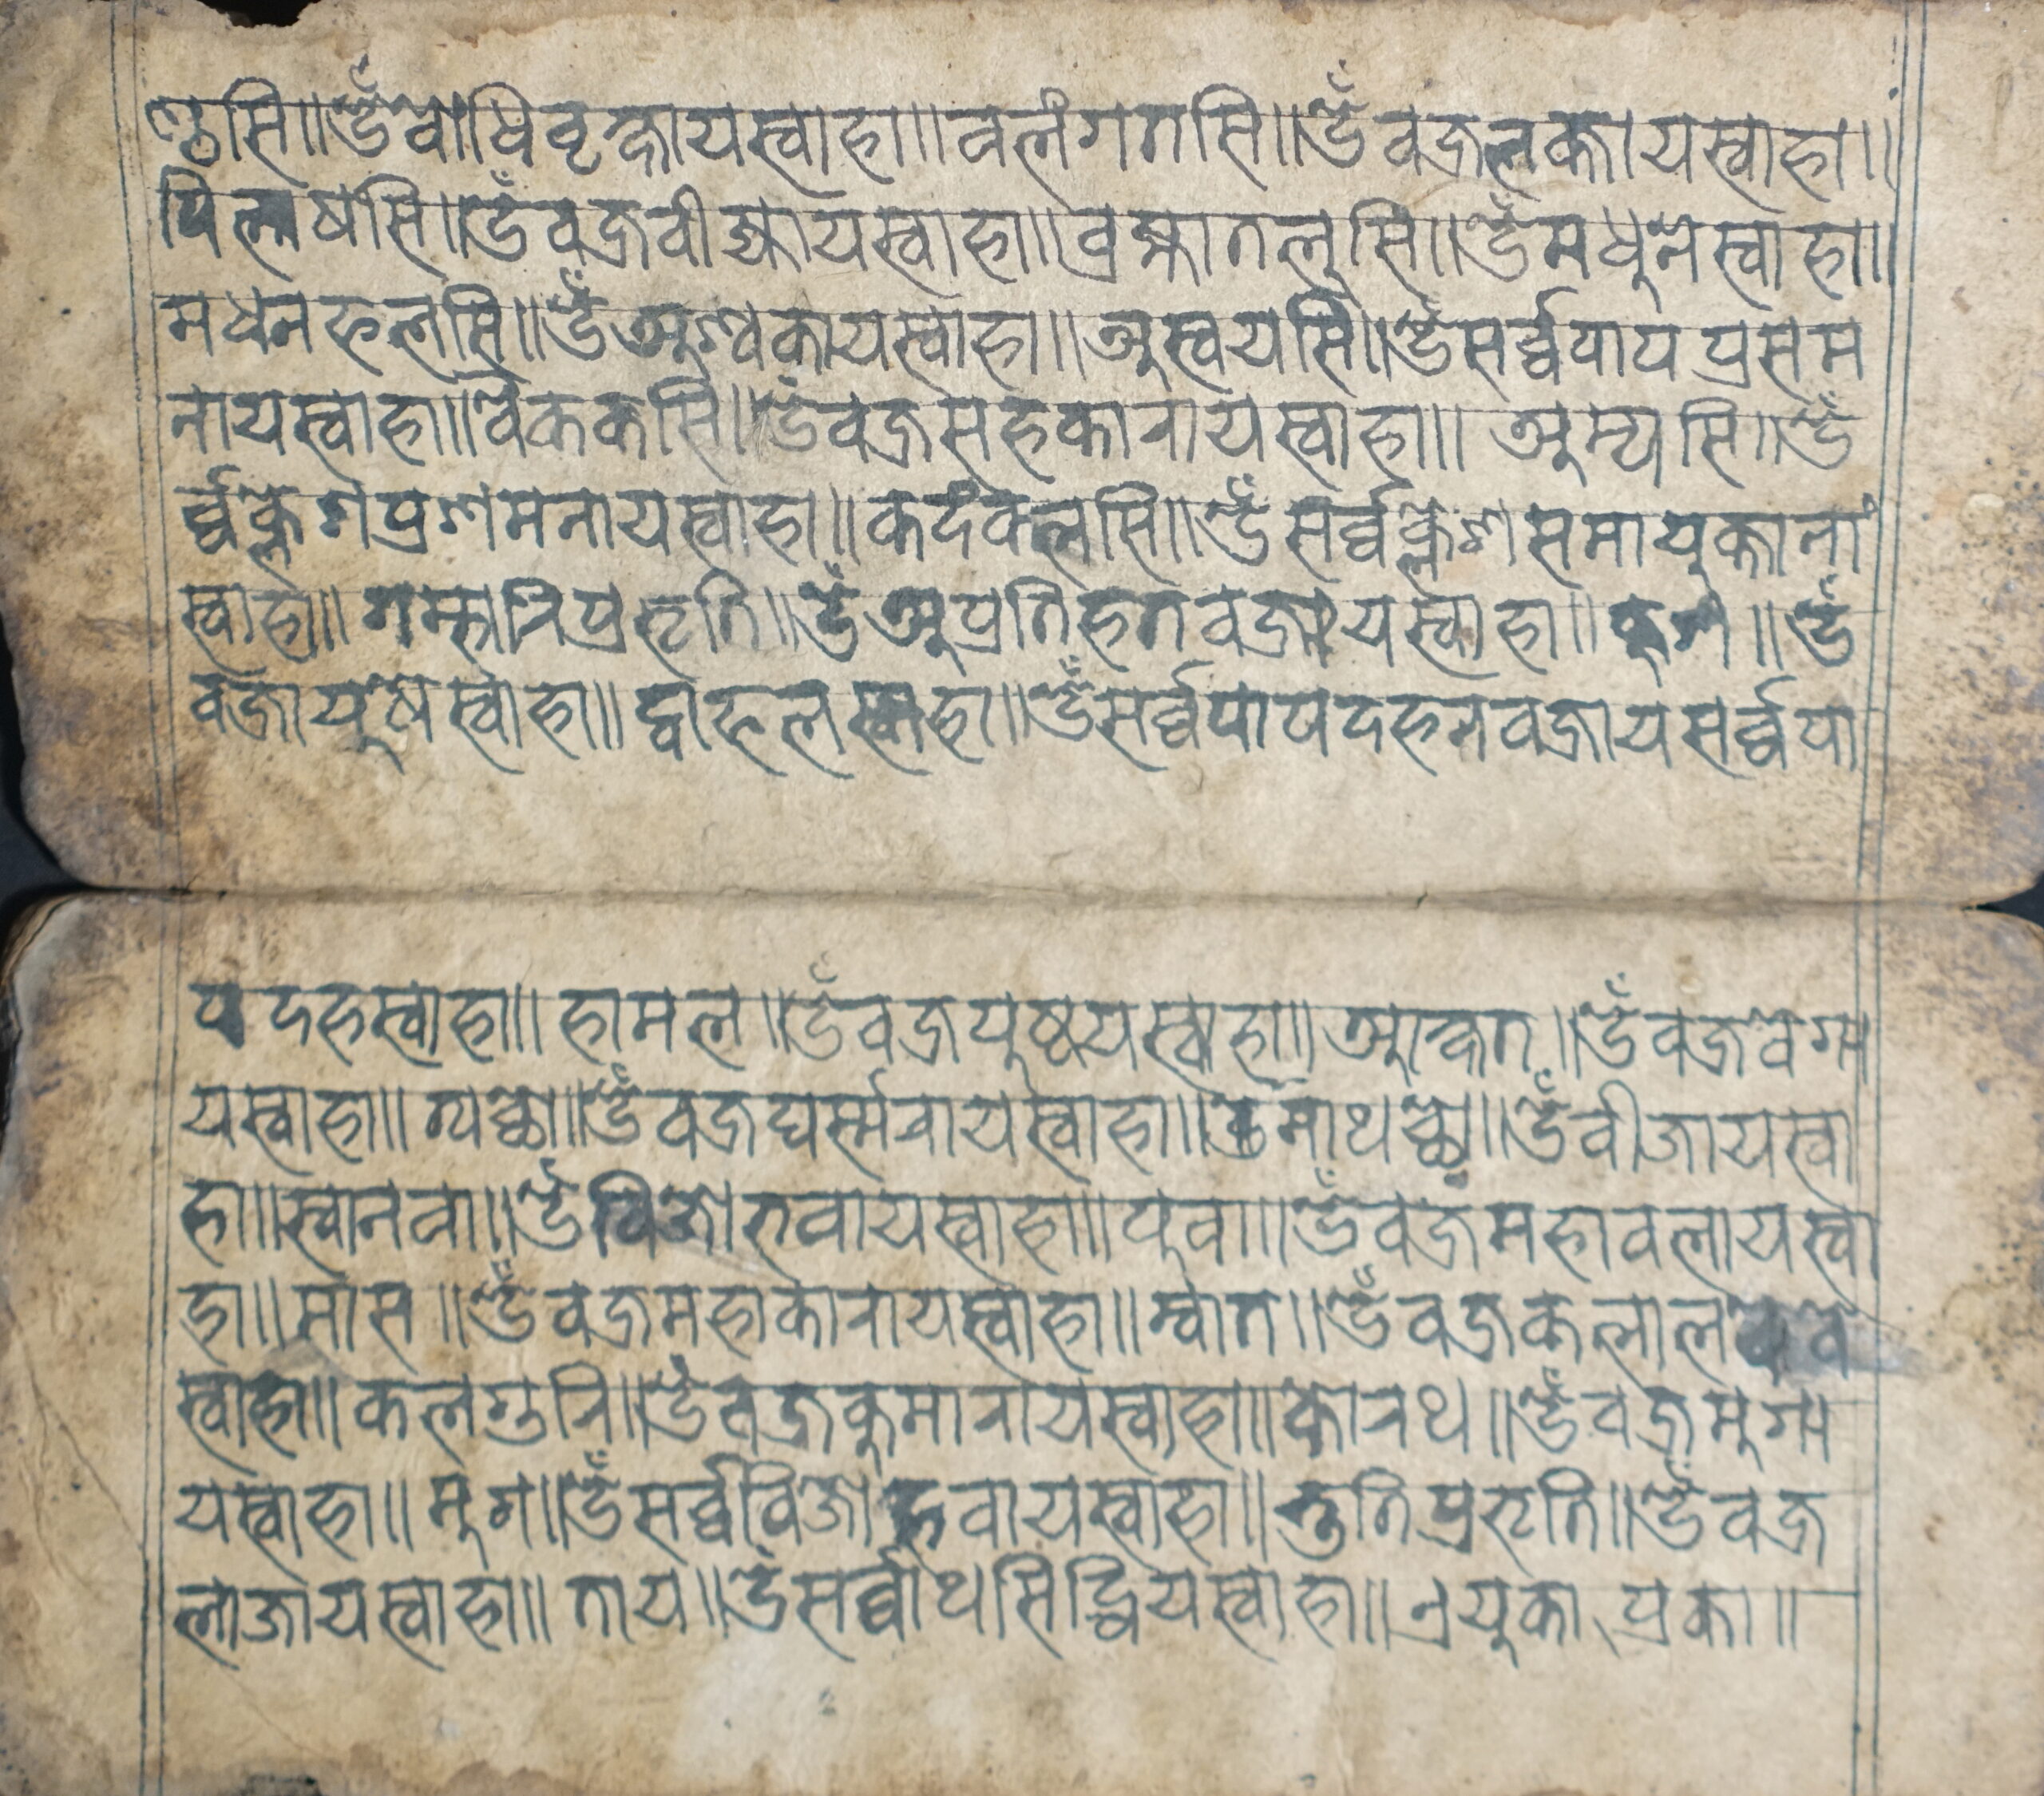 ण्ठसि॥ॐ वोधिवृक्षायस्वाहा॥वलंगतसि॥ॐ वज्रलक्तायस्वाहा॥
पिलाषसि॥ॐ वज्रवीज्यायस्वाहा॥व्रह्मातलुसि॥ॐ मधुनेस्वाहा॥
मधनहलसि॥ॐ अश्वकायस्वाहा॥अस्वयसि॥ॐ सर्व्वपापप्रसम
नायस्वाहा॥वेककसि॥ॐ वज्रसहकारायस्वाहा॥ अम्पसि॥ॐ
र्व्वक्लेशप्रशमनायस्वाहा॥कदंवलसि॥ॐ सर्व्वक्लेशसमायुक्तानां
स्वाहा॥गम्हारिप्रहृति॥ॐ अप्रतिहतवज्रायस्वाहा॥कुश॥ॐ
वज्रायुषेस्वाहा॥द्वाहलस्वाहा॥ॐ सर्व्वपापदहनवज्रायसर्व्वपा
पदहस्वाहा॥हामल॥ॐ वज्रपुष्टयस्वाहा॥आक्षत॥ॐ वज्रवेगा
यस्वाहा॥ ॐ वज्रघर्स्मरायस्वाहा॥ ॐ वीजायस्वा
हा॥स्वानवा॥ॐ विजोरुवायस्वाहा॥पुवा॥ॐ वज्रंमहावलायस्वा
हा॥मास॥ॐ वज्रमहाकारायस्वाहा॥म्वात॥ॐ वज्रकलाल
स्वाहा॥कलगुरि॥ॐ वज्रकुमारायस्वाहा॥केारथ॥ॐ वज्रमुगा
यस्वाहा॥मुग॥ॐ सर्व्वविजो वायस्वाहा॥ प्रहृति॥ॐ वज्र
लाजायस्वाहा॥ताय॥ॐ सर्व्वाथसिद्धियस्वाहा॥ प्रका॥